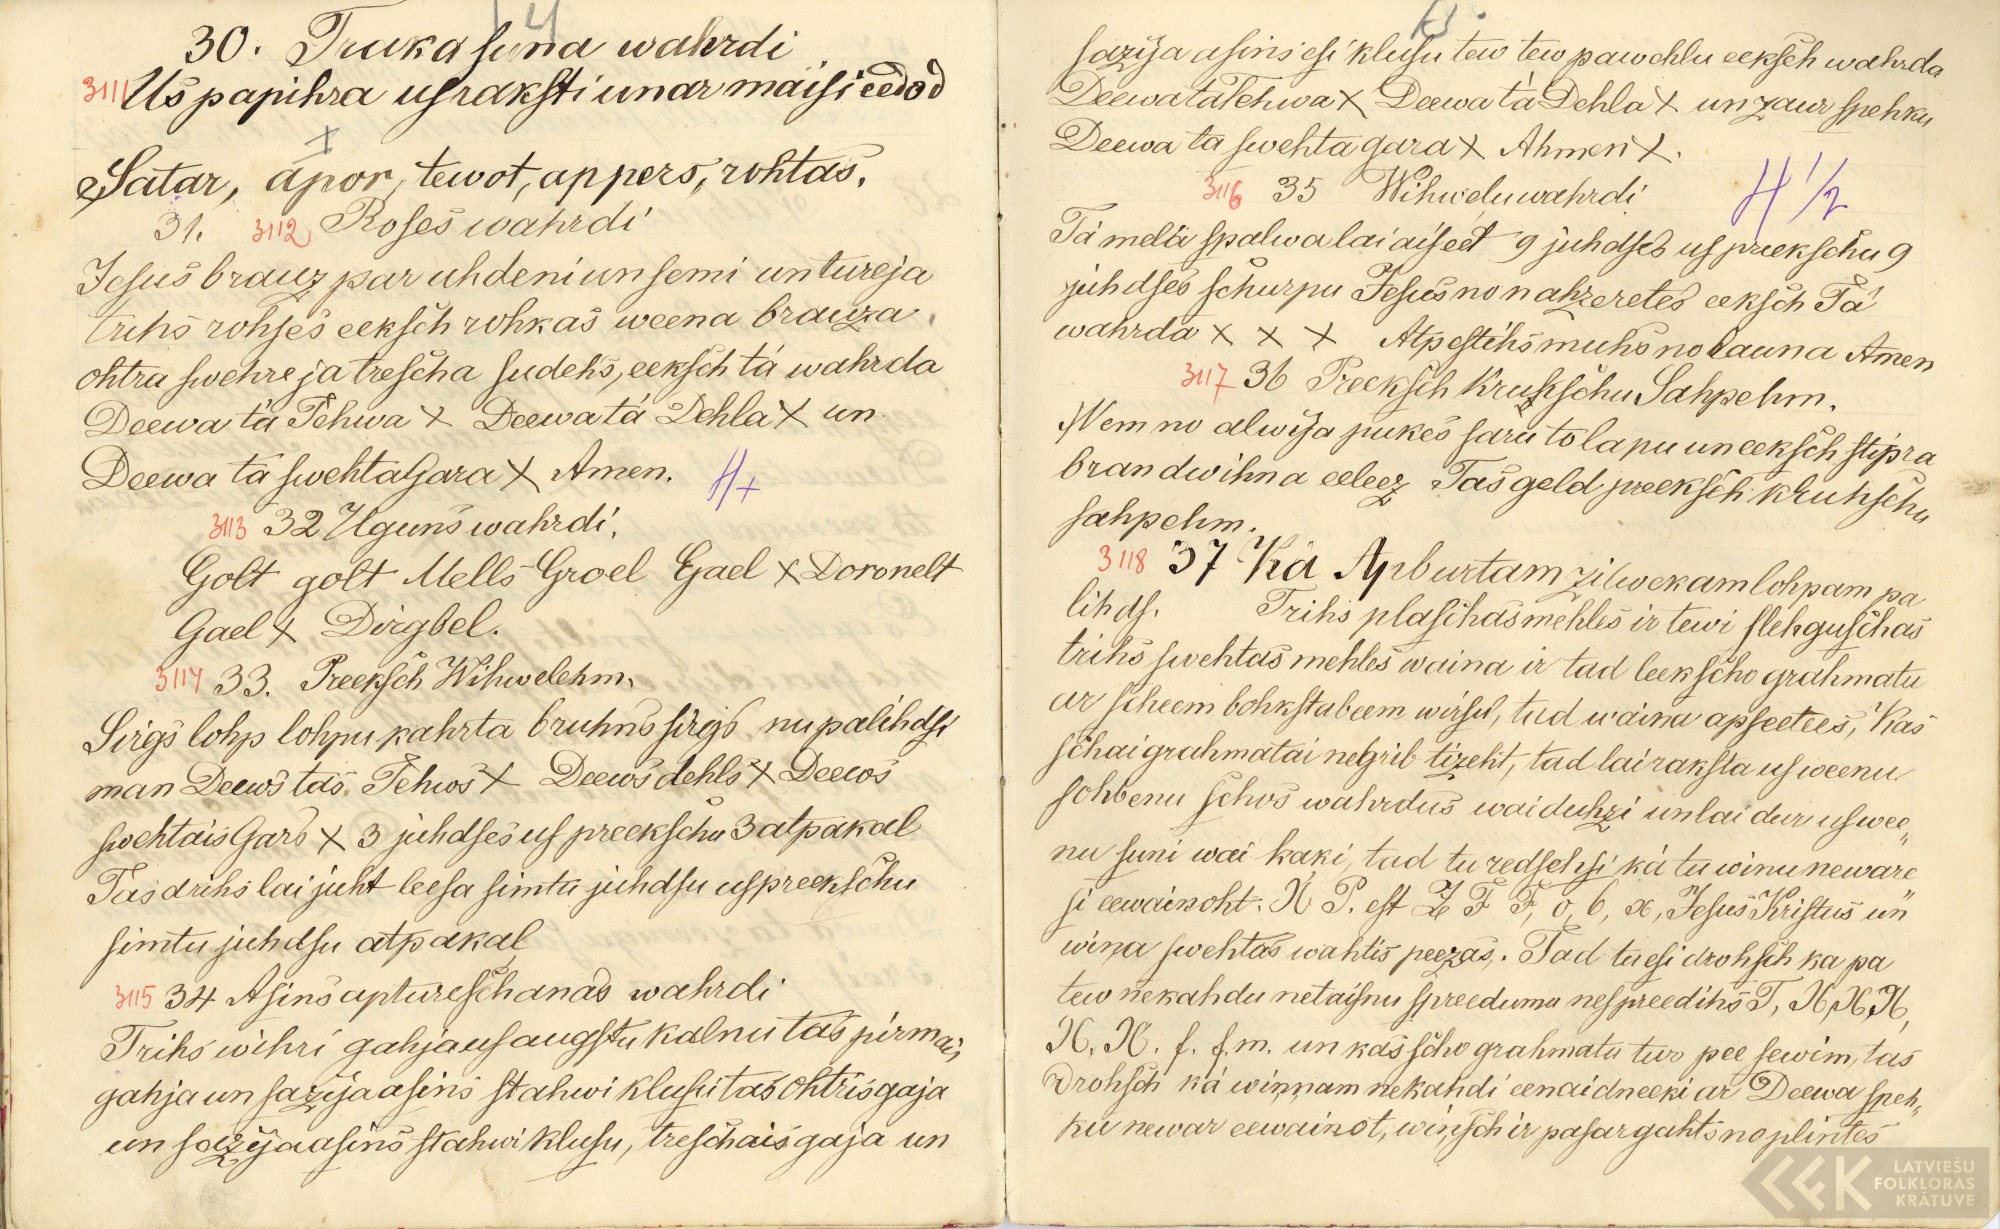 14
30. Truka suna wahrdi
3111 Us papihra usraksti un ar maisi eedod
Satar, apor, tewot, appers, rohtas.
31. 3112 Roses wahrdi
Jesus brauz par uhdeni un semi un tureja
trihs rohses eeksch rohkas weena brauza
ohtra swehreja trescha sudehs, eeksch tá wahrda
Deewa tá Tehwa x Deewa tá Dehla x un
Deewa tá swehta Gara x Amen. H+
3113 32 Uguns wahrdi.
Golt golt Mells Groel Gael x Doronelt
Gael x Dirgbel.
3114 33. Preeksch Wihwelehm.
Sirgs lohp lohpu kahrta bruhns sirgs nu palihdsi
man Deews tas Tehws x Deews dehls x Deews
swehtais Gars x 3 juhdses us preekschu 3 atpakal
Tas drihs lai juht leesa simtu juhdsu us preekschu
simtu juhdsu atpakal
3115 34 Asins aptureschanas wahrdi
Trihs wihri gahja us augstu kalnu tas pirmais
gahja un sazija asins stahwi klusu tas ohtris gaja
un sazija asins stahwi klusu, treschais gaja un
sazija asins esi klusu tew tew pawehlu eeksch wahrda
Deewa tá Tehwa x Deewa tá Dehla x un zaur spehku
Deewa ta swehta gara x Ahmen x.
3116 35 Wihwelu wahrdi H 1/2
Tá mela spalwa lai aiseet 9 juhdses us preekschu 9
juhdses schurpu Jesus no nahzeretes eeksch Tá
wahrda x x x Atpestihs muhs no launa Amen
3117 36 Preeksch Kruhschu Sahpehm.
Nem no alwija pukes saru to lapu un eeksch stipra
brandwihna eeleez Tas geld preeksch kruhschu
sahpehm.
3118 37 Ká Apburtam zilwekam lohpam pa
lihds. Trihs plaschas mehles ir tewi slehguschas
trihs swehtas mehles waina ir tad leek scho grahmatu
ar scheem bohkstabeem wirsu, tad waina apseetees, Kas
schai grahmatai negrib tizeht, tad lai raksta us weenu
sohbenu schos wahrdus wai duhzi un lai dur us wee„
nu suni wai kaki, tad tu redsehsi ká tu winu neware
si eewainoht. X P. est Z F F, o, 6, x, Jesus Kristus un
wina swehtas wahtis peezas. Tad tu esi drohsch ka pa
tew nekahdu netaisnu spreedumu nespreedihs T, X, X, X,
X. X. f. f. m. un kas scho grahmatu tur pee sewim, tas
drohsch ká winnam nekahdi eenaidneeki ar Deewa speh„
ku newar eewainot, winsch ir pasargahts no plintes
LATVIEŠU
FOLKLORAS
KRĀTUVE